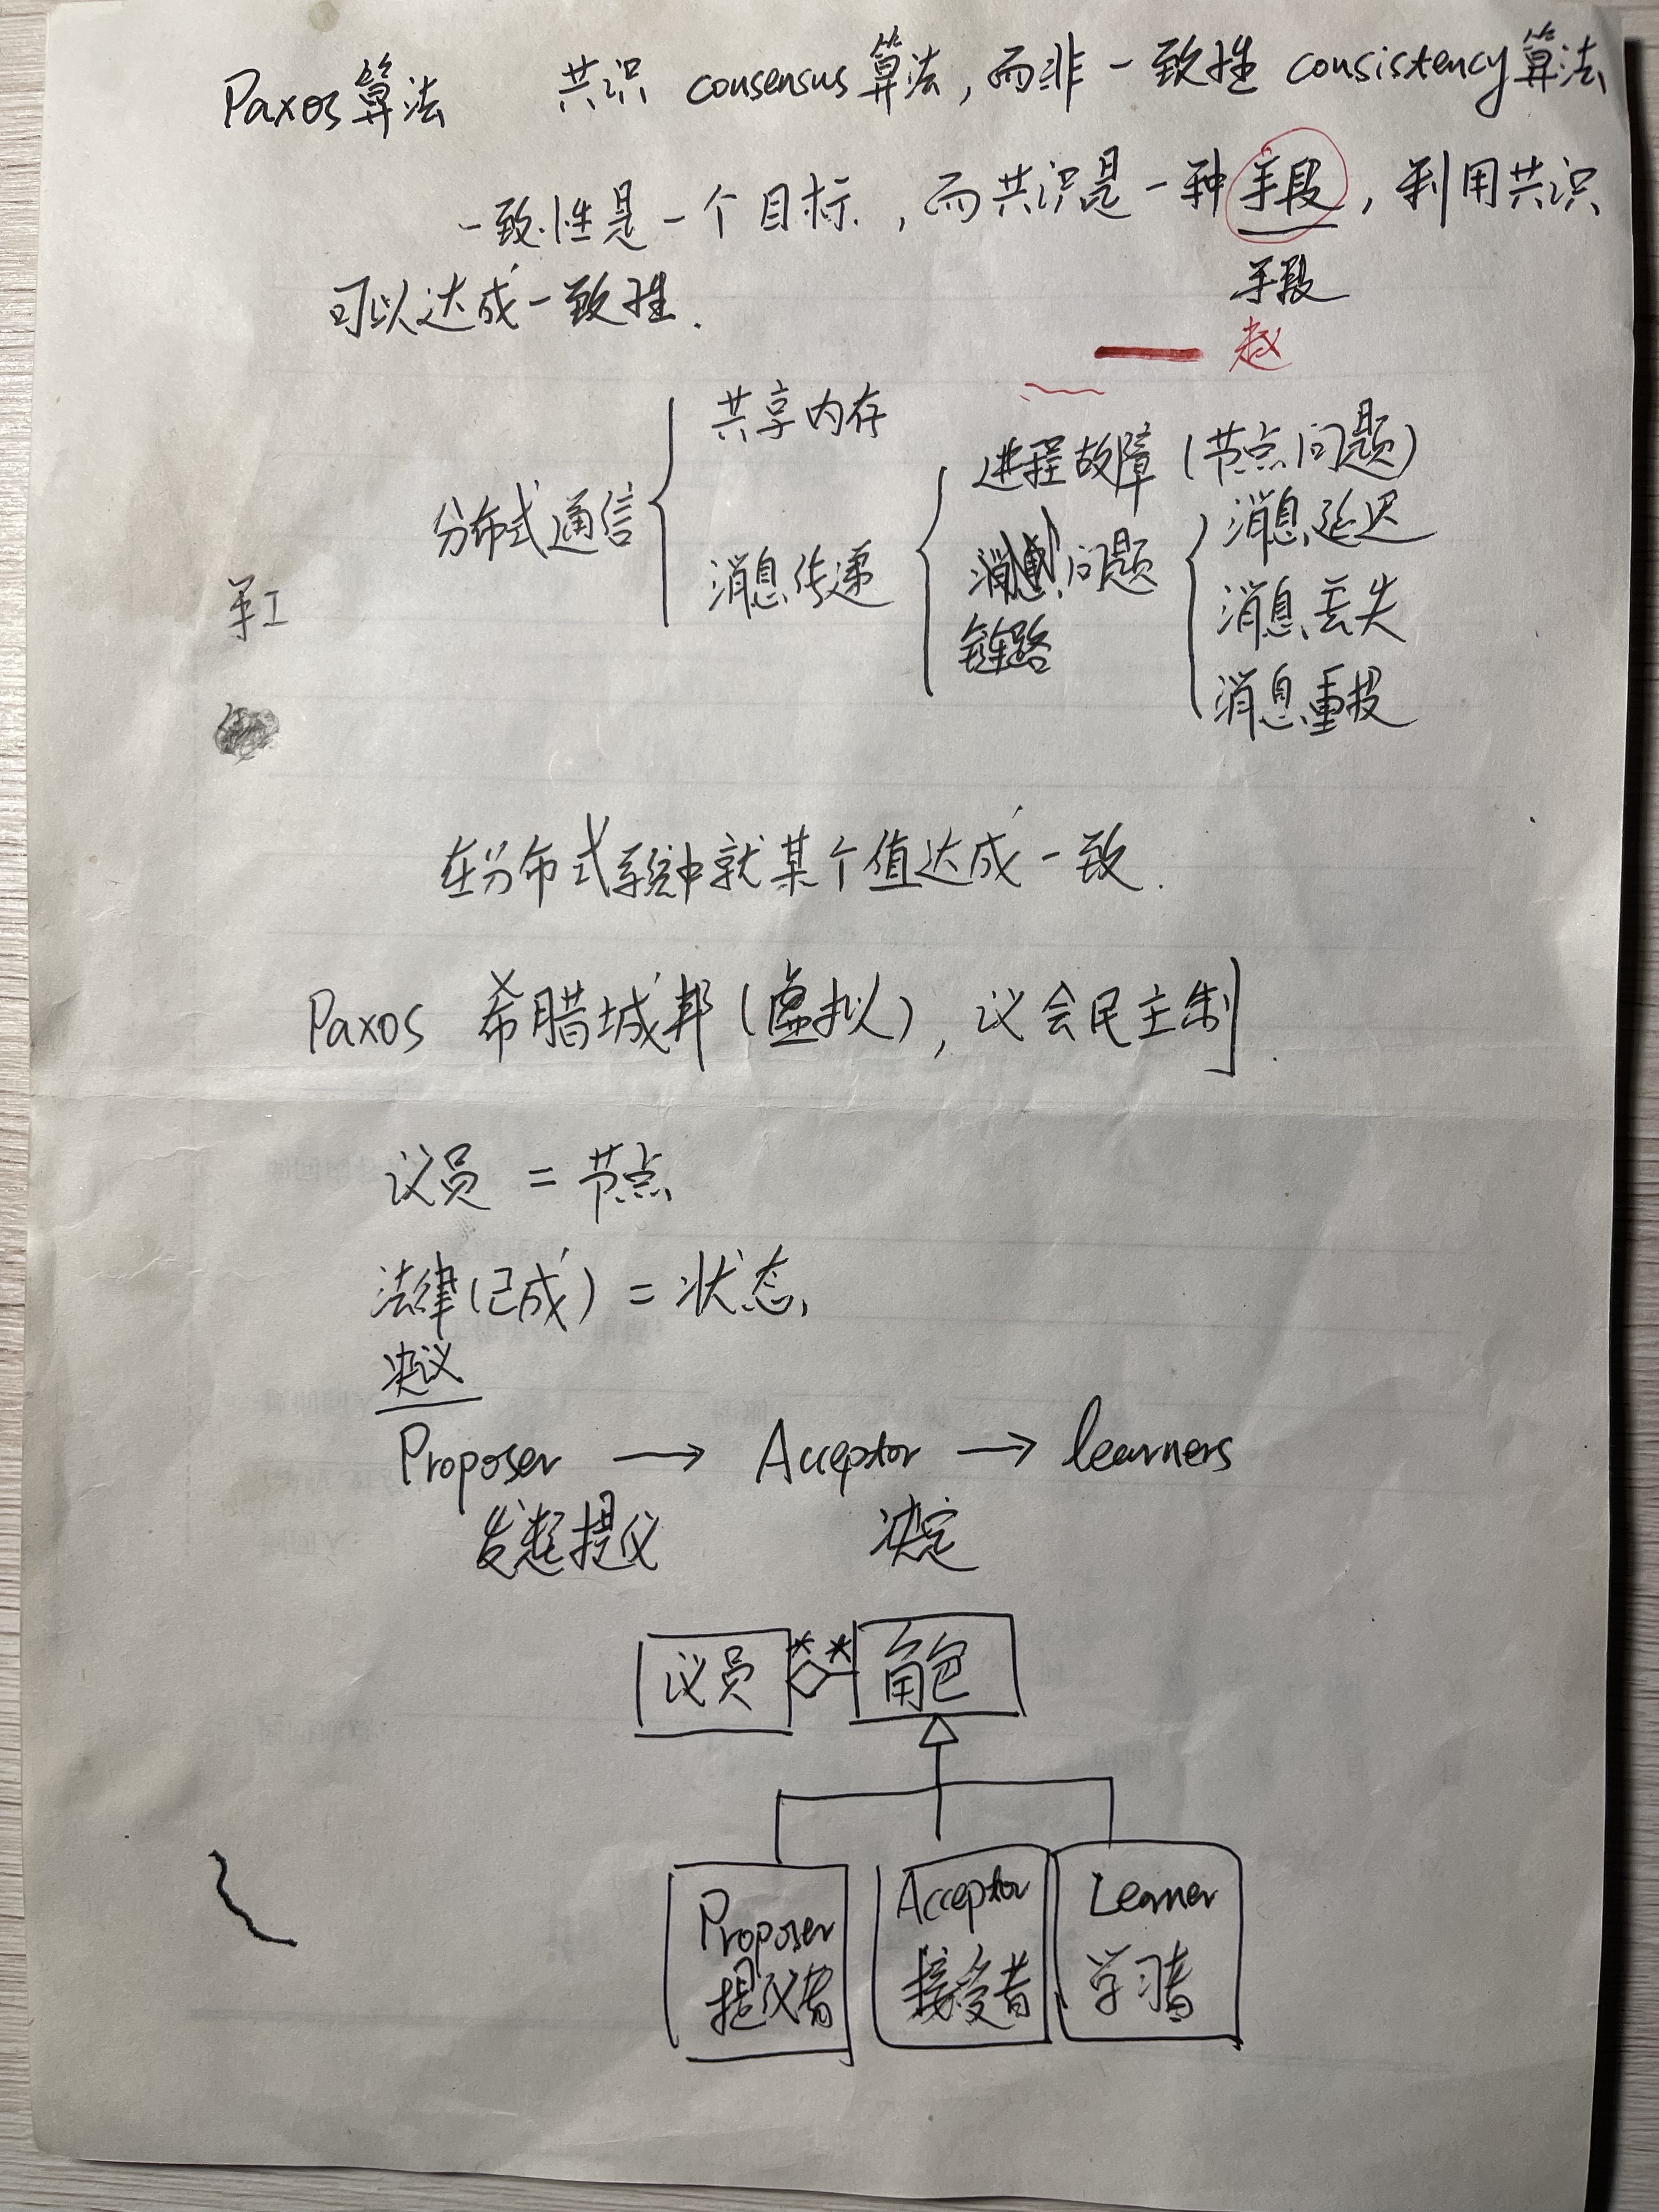 Paxos算法 共识 consensus算法,而非一致性 consistency算法
一致性是一个目标,而共识是一种手段,利用共识
手段
可以达成一致性.
赵
共享内存
进程故障(节点问题)
分布式通信
消息延迟
消息传递
问题
消息丢失
链路
消息重投
在分布式系统中就某个值达成一致.
Paxos 希腊城邦(虚拟),议会民主制
议员 = 节点
法律(已成) = 状态,
决议
Proposer → Acceptor → learners
发起提议 决定
议员 ** 角色
Proposer Acceptor Learner
提议者 接受者 学习者